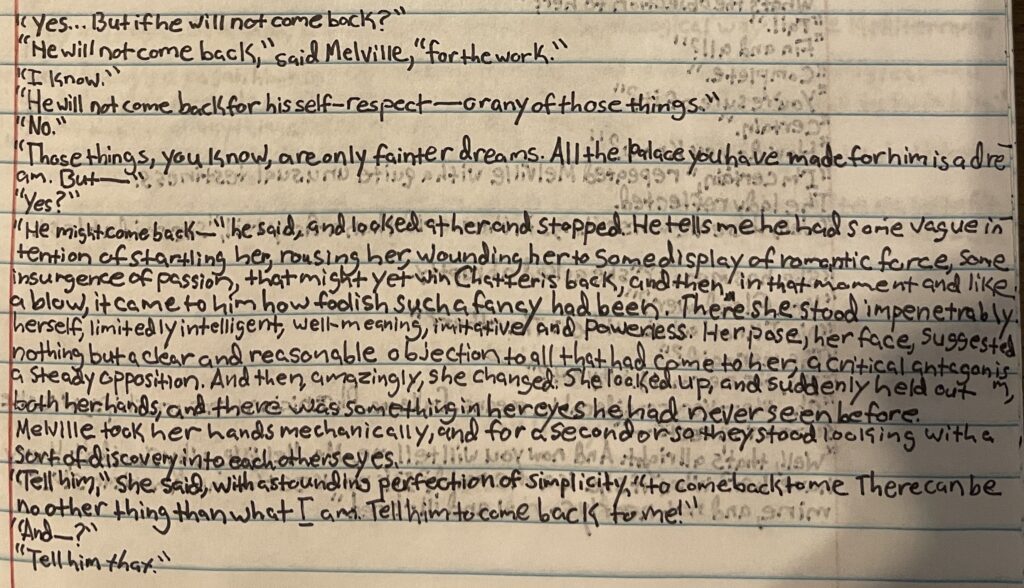 "Yes... But if he will not come back?"
"He will not come back," said Melville, "for the work."
"I know."
"He will not come back for his self-respect—or any of those things."
"No."
"Those things, you know, are only fainter dreams. All the palace you have made for him is a dre-
am. But—"
"Yes?"
"He might come back—" he said, and looked at her and stopped. He tells me he had some vague in-
tention of startling her, rousing her, wounding her to some display of romantic force, some
insurgence of passion, that might yet win Chatteris back, and then, in that moment and like
a blow, it came to him how foolish such a fancy had been. There she stood impenetrably
herself, limitedly intelligent, well-meaning, imitative, and powerless. Her pose, her face, suggested
nothing but a clear and reasonable objection to all that had come to her, a critical antagonis
a steady opposition. And then, amazingly, she changed. She looked up, and suddenly held out m,
both her hands, and there was something in her eyes he had never seen before.
Melville took her hands mechanically, and for a second or so they stood looking with a
sort of discovery into each others eyes.
"Tell him," she said, with astounding perfection of simplicity, "to come back to me. There can be
no other thing than what I am. Tell him to come back to me!"
"And—?"
"Tell him that."